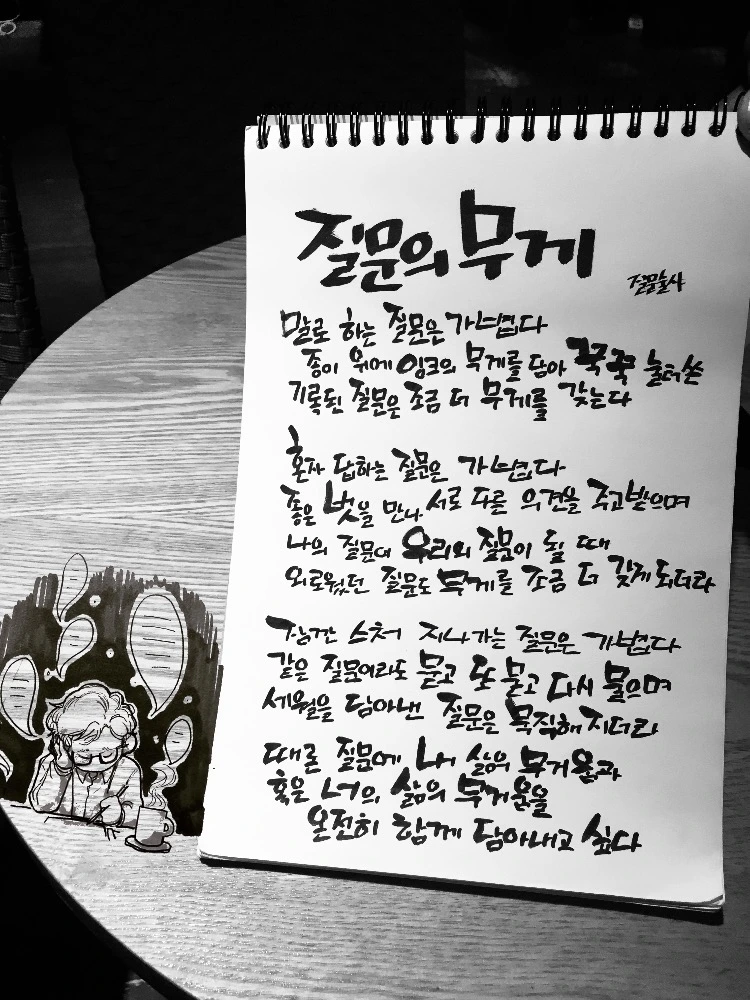 질문의 무게
질문술사
말로 하는 질문은 가볍다
종이 위에 잉크의 무게를 담아 꾹꾹 눌러쓴
기록된 질문은 조금 더 무게를 갖는다
혼자 답하는 질문은 가볍다
좋은 벗을 만나 서로 다른 의견을 주고받으며
나의 질문이 우리의 질문이 될 때
외로웠던 질문도 무게를 조금 더 갖게되더라
잠깐 스쳐 지나가는 질문은 가볍다
같은 질문이라도 묻고 또 묻고 다시 물으며
세월을 담아낸 질문은 묵직해지더라
때론 질문에 나의 삶의 무거움과
혹은 너의 삶의 무거움을
온전히 함께 담아내고 싶다